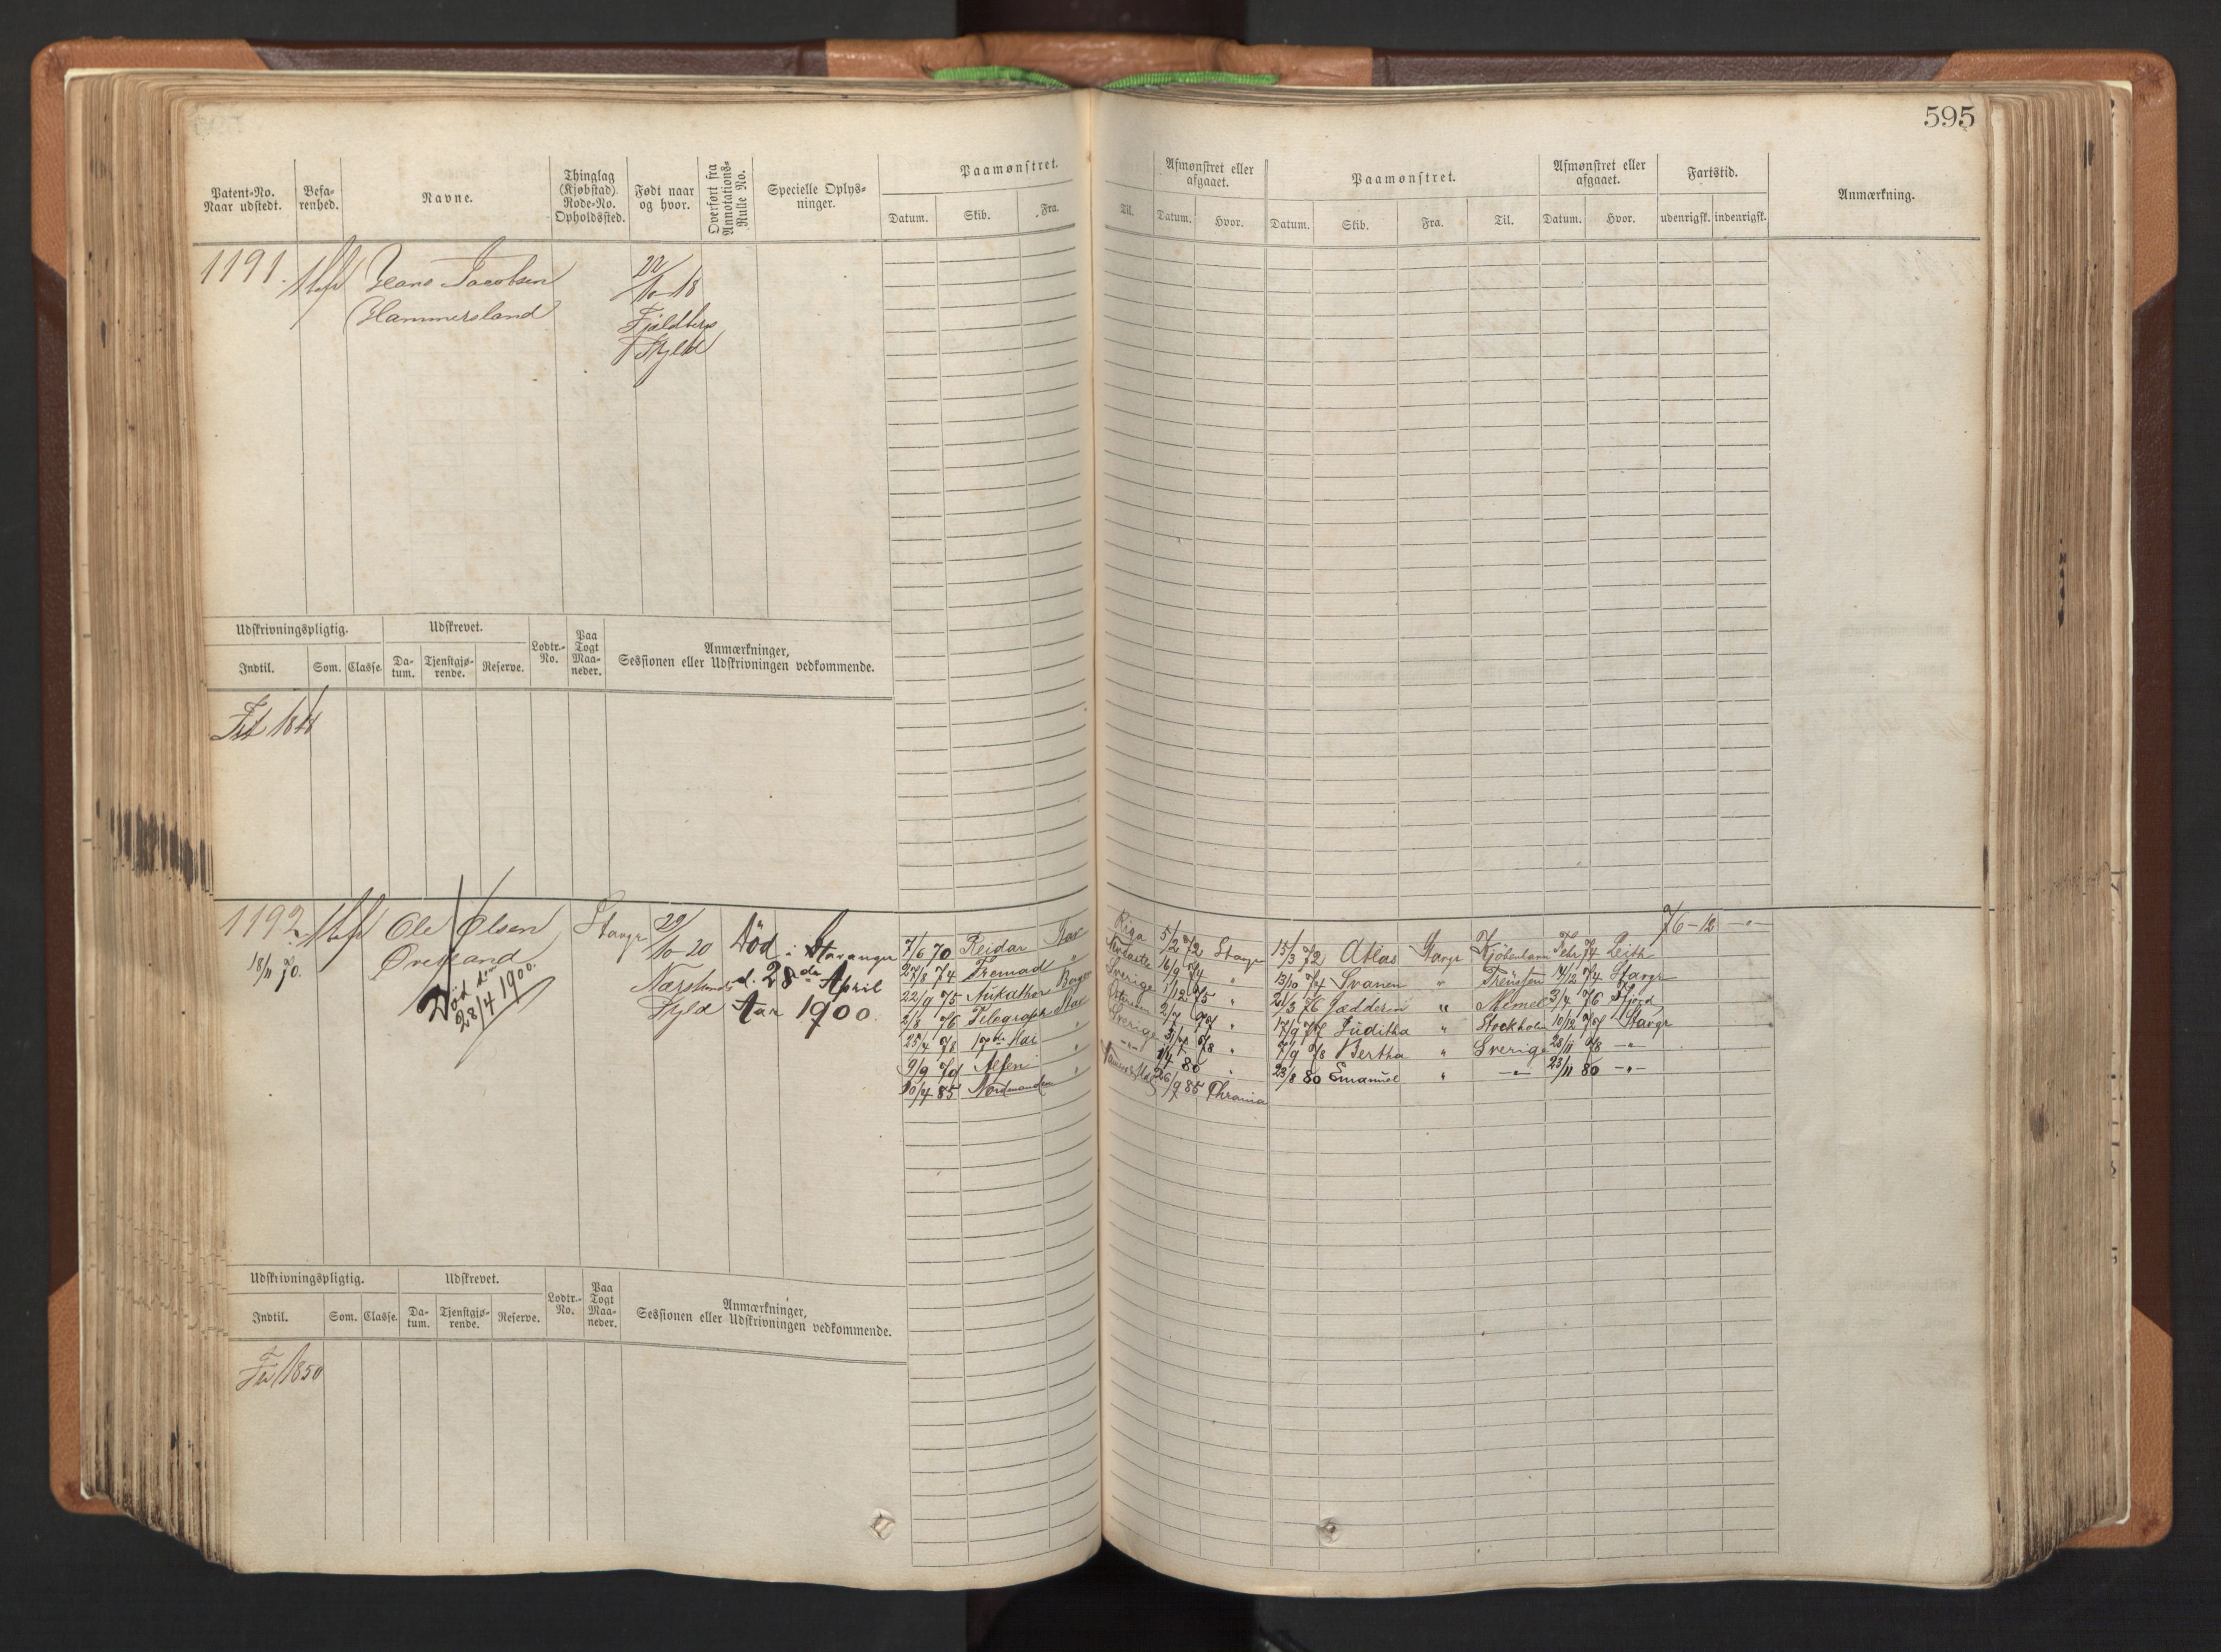 595
Patent-No. Naar udstedt.
Befarenhed.
Navne.
Thinglag (Kjøbstad) Rode-No. Opholdssted.
Født naar og hvor.
Overført fra Annotations-Rulle No.
Specielle Oplysninger.
Paamønstret.
Datum. Skib. Fra. Til.
Afmønstret eller afgaaet.
Datum. Hvor.
Paamønstret.
Datum. Skib. Fra. Til.
Afmønstret eller afgaaet.
Datum. Hvor.
Fartstid.
udenrigsk. indenrigsk.
Anmærkning.
1191.
Hans Jacobsen
Hammersland
22/10-18
Fjeldbergs
Udskrivningspligtig. Udskrevet. Lodtr.-No. Paa Togt Maaneder.
Anmærkninger, Sessionen eller Udskrivningen vedkommende.
Indtil. Som. Classe. Datum. Tjenstgjørende. Reserve.
1192
18/11 70.
Ole Olsen
Død den
28/4 1900.
Stavgr
22/10-20
Død i Stavanger
d. 28de April
Aar 1900.
76-12 -"-
7/6 70 Reidar Stav Riga 5/2 72 Stavgr 15/3 72 Atlas Stavgr Kjøbenhavn Febr 74 Leith
27/8 74 Fremad " 16/9 74 " 13/10 74 Svanen " 14/12 74 Stavgr
22/9 75 Sverige 1/12 75 " 21/3 76 Jædderen " Memel 3/4 76
2/8 76 Telegraph 2/7 77 " 17/9 77 Juditha " Stockholm 10/12 77 Stavgr
25/4 78 17de Mai " Sverige 78 " 7/9 78 Bertha " Sverige 28/11 78 -"-
9/9 79 " -"- 1/4 80 " 23/8 80 Emanuel " -"- 23/11 80 -"-
30/4 85 Nordmanden " 26/9 85 Chrania
Udskrivningspligtig. Udskrevet. Lodtr.-No. Paa Togt Maaneder.
Anmærkninger, Sessionen eller Udskrivningen vedkommende.
Indtil. Som. Classe. Datum. Tjenstgjørende. Reserve.
1850